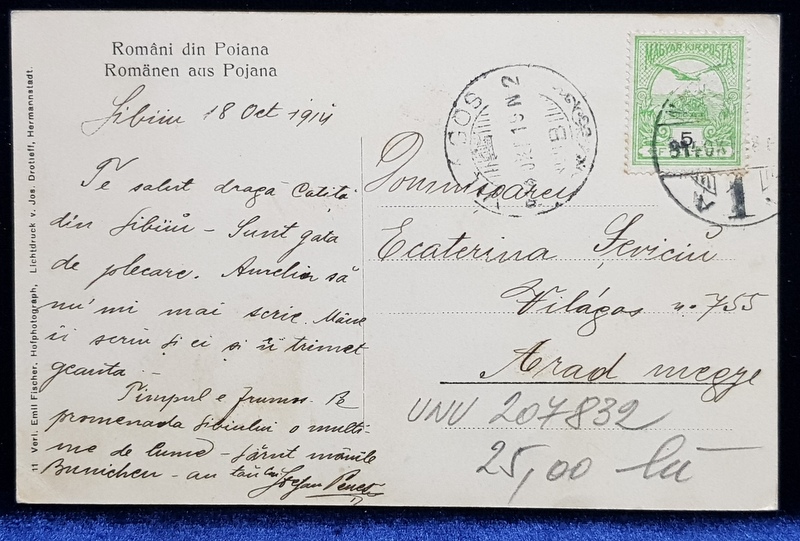 Români din Poiana
Romänen aus Pojana
Sibiiu 18 Oct 1914
Te salut dragă Catiță
din Sibiiu – Sunt gata
de plecare. Aurelia să
nu'mi mai scrie. Mâne
îi scriu și ei și îi trimet
geanta –
Timpul e frumos. Pe
promenada Sibiului o multi-
me de lume – Sărut mânile
Bunichei – au tău
Ștefan
MAGYAR KIR. POSTA
5
VILÁGOS
Domnișoarei
Ecaterina Șeviciŭ
Világos nº 755
Arad megye
UNV 207832
25,00 lei
11 Verl. Emil Fischer, Hofphotograph, Lichtdruck v. Jos. Drotleff, Hermannstadt.